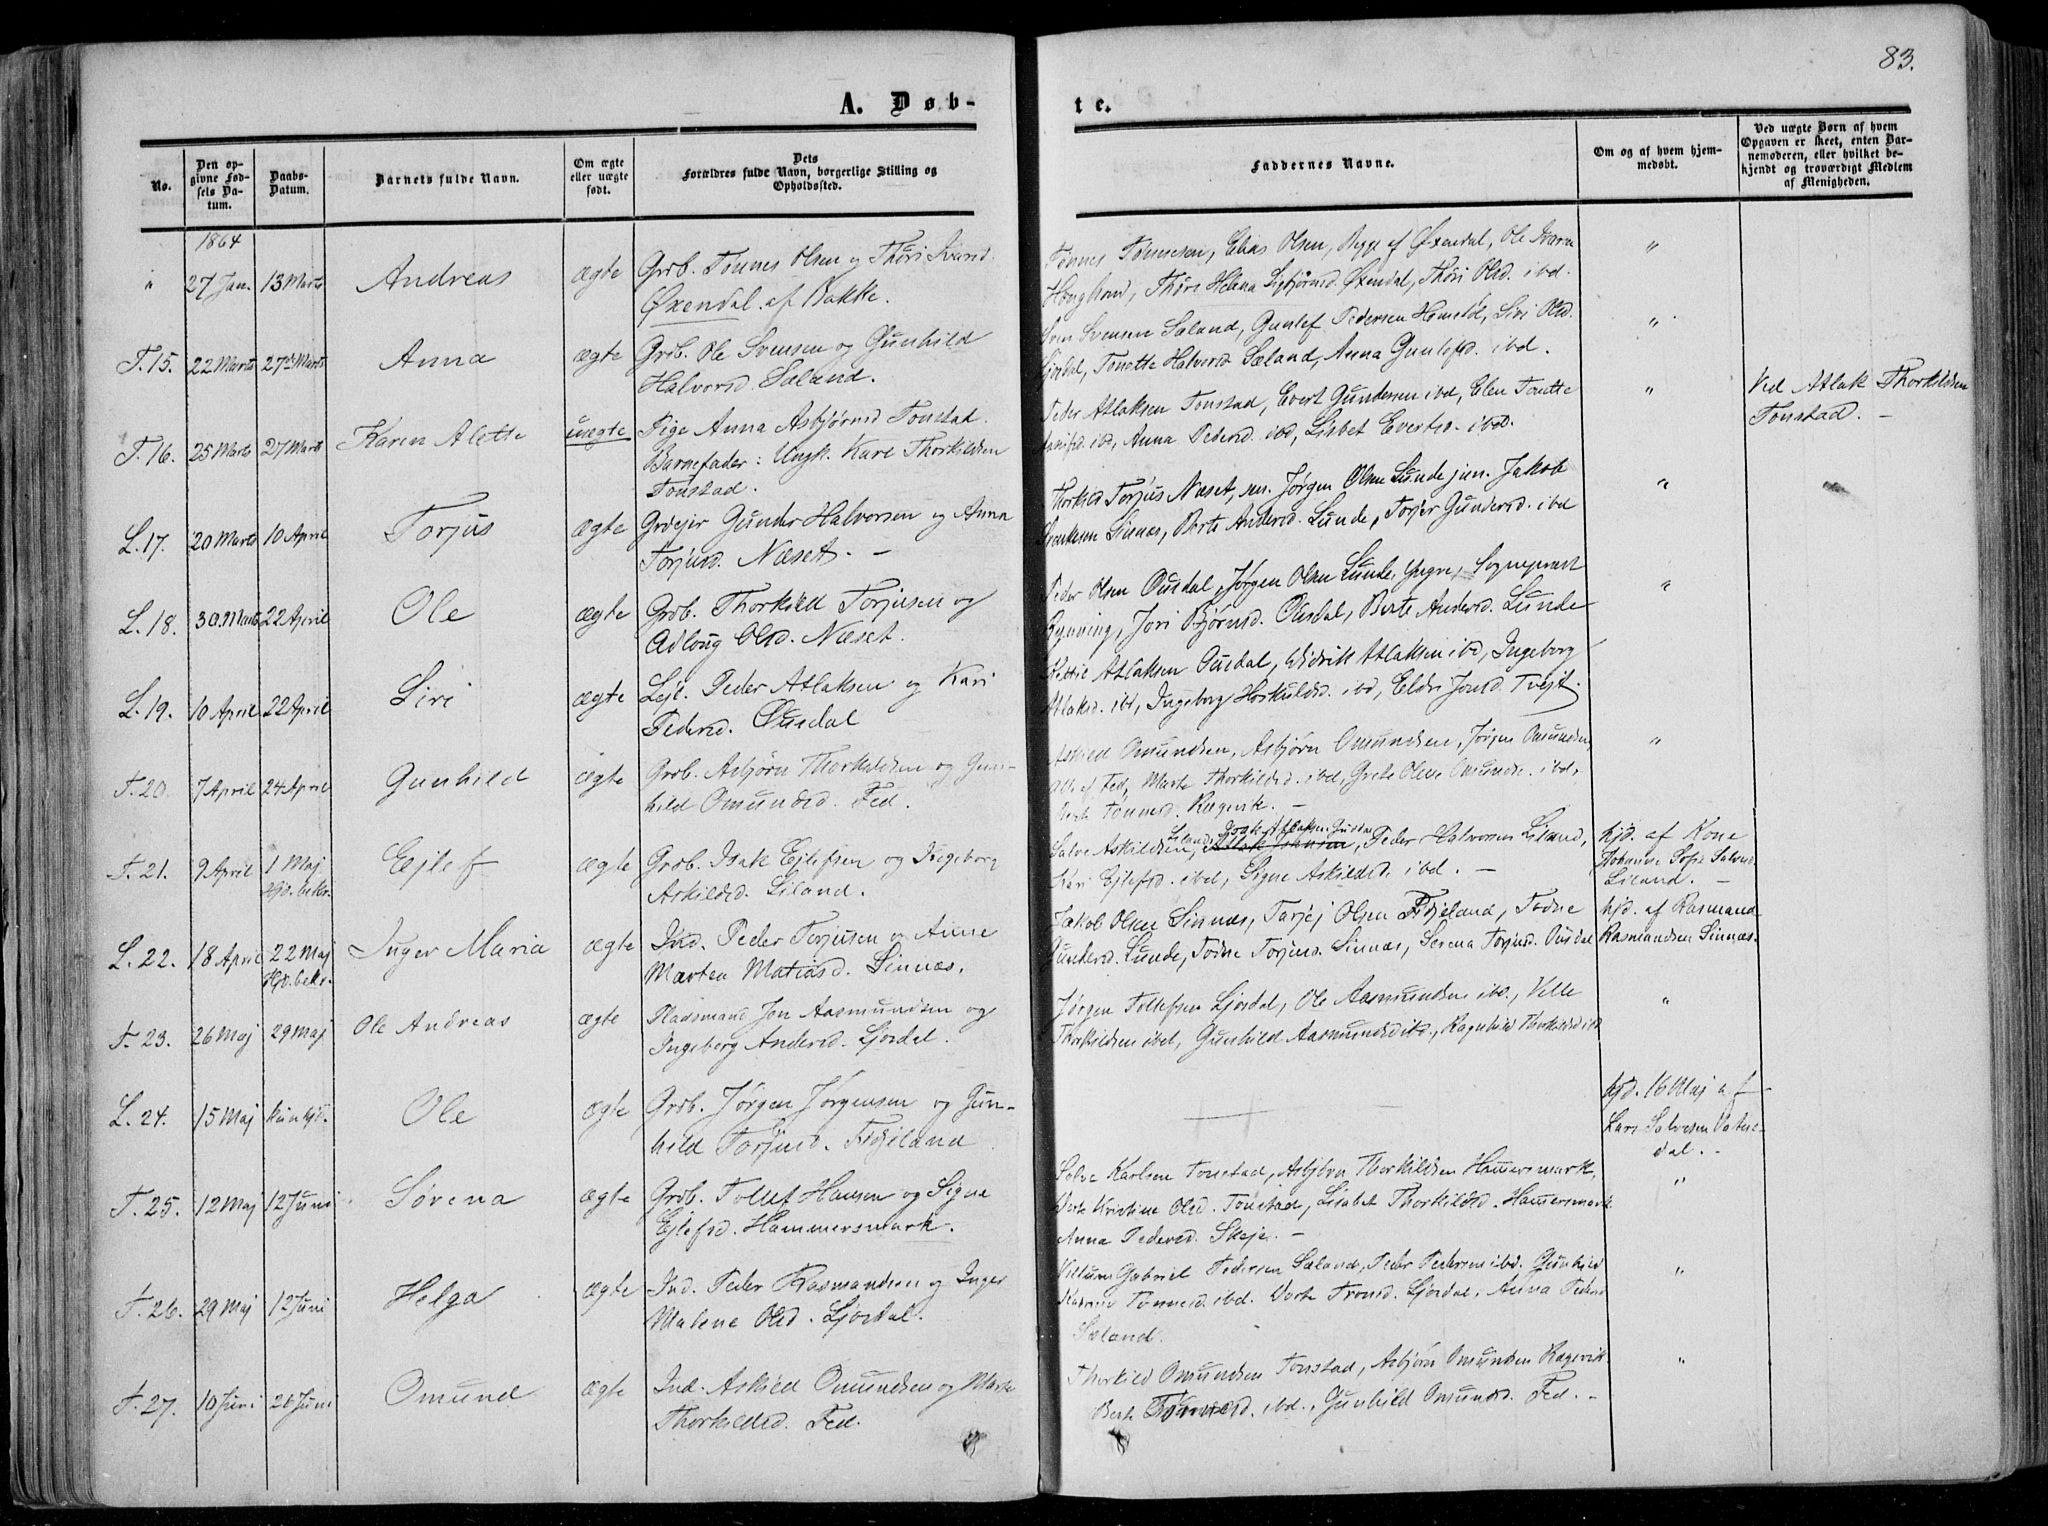 83.
A. Døb-
te.
No.
Den op-
givne Fød-
sels Da-
tum.
Daabs-
Datum.
Barnets fulde Navn.
Om ægte
eller uægte
født.
Dets
Forældres fulde Navn, borgerlige Stilling og
Opholdssted.
Faddernes Navne.
Om og af hvem hjem-
medøbt.
Ved uægte Børn af hvem
Opgaven er skeet, enten Bar-
nemoderen, eller hvilket be-
kjendt og troværdigt Medlem
af Menigheden.
1864
" 27 Jan. 13 Marts Andreas ægte Grb. Tønnes Olsen og Thöri Ivarsd.
Øxendal af Bakke.
Tønnes Tønnesen, Elias Olsen, Begge af Øxendal, Ole
Thöri Helena Sigbjørnsd. Øxendal, Thöri Olsd. ibd. "
T. 15. 22 Marts 27de Marts Anna ægte Grb. Ole Svensen og Gunhild
Halvorsd. Sæland.
Sven Svensen Sæland, Gunlef Pedersen Homstöl, Siri Olsd.
Tonette Halvorsd. Sæland, Anna Gunlefsd. ibd. "
T. 16. 25 Marts 27 Marts Karen Alette uægte Pige Anna Asbjørnsd Tonstad.
Barnefader: Ungk. Karl Thorkildsen
Tonstad.
Peder Atlaksen Tonstad, Evert Gundersen ibd, Elen Tonette
ibd, Anna Pedersd. ibd, Lisbet Evertsd. ibd. "
Ved Atlak Thorkildsen
Tonstad. —
L. 17. 20 Marts 10 April Torjus ægte Grdejer Gunder Halvorsen og Anna
Torjusd. Næset. —
Thorkild Torjus Næset, sen. Jørgen Olsen Lunde jun. Jakob
Sinnæs, Berte Andersd. Lunde, Torjer Gundersd. ibd "
L. 18. 30. Marts 22 April Ole ægte Grb. Thorkild Torjusen og
Adloug Olsd. Næset.
Peder Olsen Ousdal, Jørgen Olsen Lunde, yngre, Sogneprest
Rynning, Jöri Bjørnsd. Ousdal, Berte Andersd. Lunde "
L. 19. 10 April 22 April Siri ægte Lejl. Peder Atlaksen og Kari
Pedersd. Ousdal
Atlaksen Ousdal, Didrik Atlaksen ibd, Ingeborg
Atlaksd. ibd, Ingeborg Horskuldsd. ibd, Eldri Jonsd. Tvejt.
T. 20. 7 April 24 April Gunhild ægte Grb. Asbjörn Thorkildsen og Gun-
hild Omundsd. Fed.
Askild Omundsen, Asbjörn Omundsen, Jörgen Omundsen,
Alle af Fed, Marte Thorkildsd. ibd, Grete Olene Omundsd. ibd, "
Berte Tønnesd. Rægevik. —
T. 21. 9 April 1 Maj
Hjd. bekr. Ejlef ægte Grb. Isak Ejlefsen og Ingeborg
Askildsd. Liland.
Salve Askildsen Liland, Atlaksen Gusdal, Peder Halvorsen Liland,
Kari Ejlefsd. ibd, Signe Askildsd. ibd. —
hjd. af Kone
Johanne Sofie Salvesd.
Liland. —
L. 22. 18 April 22 Maj
Hjd. bekr. Inger Maria ægte Ind. Peder Torjusen og Anne
Marten Matiasd. Sinnæs.
Jakob Olsen Sinnæs, Tarjej Olsen Fidjeland, Todne
Gundersd. Lunde, Todne Torjusd. Sinnæs, Serena Torjusd. Ousdal
hjd. af Rasmand
Rasmandsen Sinnæs.
T. 23. 26 Maj 29 Maj Ole Andreas ægte Pladsmand Jon Aasmundsen og
Ingeborg Andersd. Ljosdal.
Jørgen Tollefsen Ljosdal, Ole Aasmundsen ibd., Ville
Thorkildsen ibd, Gunhild Aasmundsd ibd., Ragnhild Thorkildsd ibd "
L. 24. 15 Maj kun hjd. Ole ægte Grb. Jørgen Jørgensen og Gun-
hild Torjusd. Fidjeland
—
hjd. 16 Maj af
Lars Salvesen Vatne-
dal. —
T. 25. 12 Maj 12 Juni Sørena ægte Grb. Tollef Hansen og Signe
Ejlefsd. Hammersmark.
Salve Karlsen Tonstad, Asbjörn Thorkildsen Hamersmark,
Berte Kristine Olsd. Tonstad, Lisabet Thorkildsd. Hamersmark
Anna Pedersd. Skeje. — "
T. 26. 29 Maj 12 Juni Helga ægte Ind. Peder Rasmandsen og Inger
Malene Olsd. Ljosdal.
Villum Gabriel Pedersen Sæland, Peder Pedersen ibd. Gunhild
Tønnesd. ibd. Dorte Tronsd. Ljosdal, Anna Pedersd
Sæland. "
T. 27. 10 Juni 26 Juni Omund ægte Ind. Askild Omundsen og Marte
Thorkildsd. Fed.
Thorkild Omundsen Tonstad, Asbjörn Omundsen Rægevik
Berte Tønnesd. ibd., Gunhild Omundsd. Fed. — "